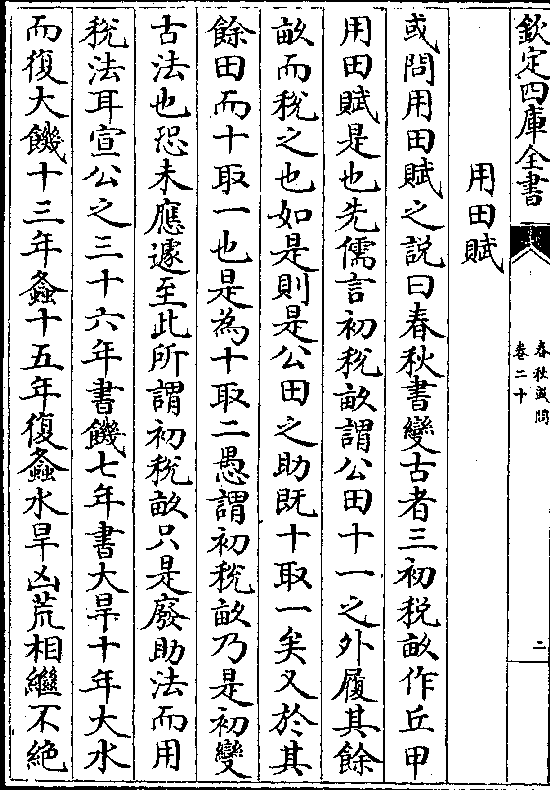 欽定四庫全書
春秋或問
卷二十
二
用田賦
或問用田賦之説曰春秋書變古者三初税畝作丘甲
用田賦是也先儒言初税畝謂公田十一之外履其餘
畝而税之也如是則是公田之助既十取一矣又於其
餘田而十取一也是為十取二愚謂初税畝乃是初變
古法也恐未應遽至此所謂初税畝只是廢助法而用
税法耳宣公之三十六年書饑七年書大旱十年大水
而復大饑十三年螽十五年復螽水旱凶荒相繼不絶